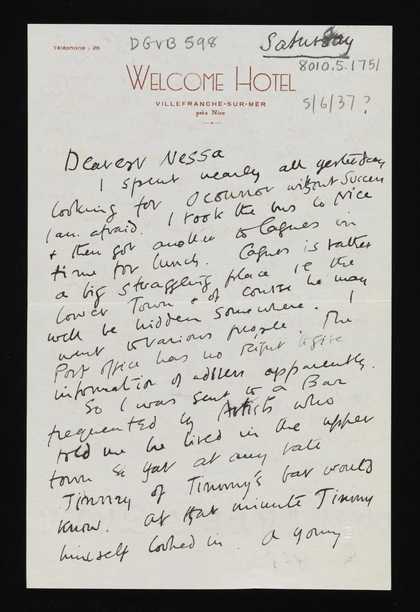 Téléphone : 26
DGVB 598
Saturday
8010.5.1751
WELCOME HOTEL
VILLEFRANCHE-SUR-MER
près Nice
5/6/37?
Dearest Nessa
I spent nearly all yesterday
looking for Oconnor without success
I am afraid. I took the bus to Nice
& then got another to Cagnes in
time for lunch. Cagnes is rather
a big straggling place ie the
lower Town & of course he may
well be hidden somewhere. I
went to various people. The
Post office has no right to give
information of address apparently.
So I was sent to a Bar
frequented by Artists who
told me he lived in the upper
town & that at any rate
Jimmy of Jimmy's bar would
know. At that minute Jimmy
himself looked in. A young